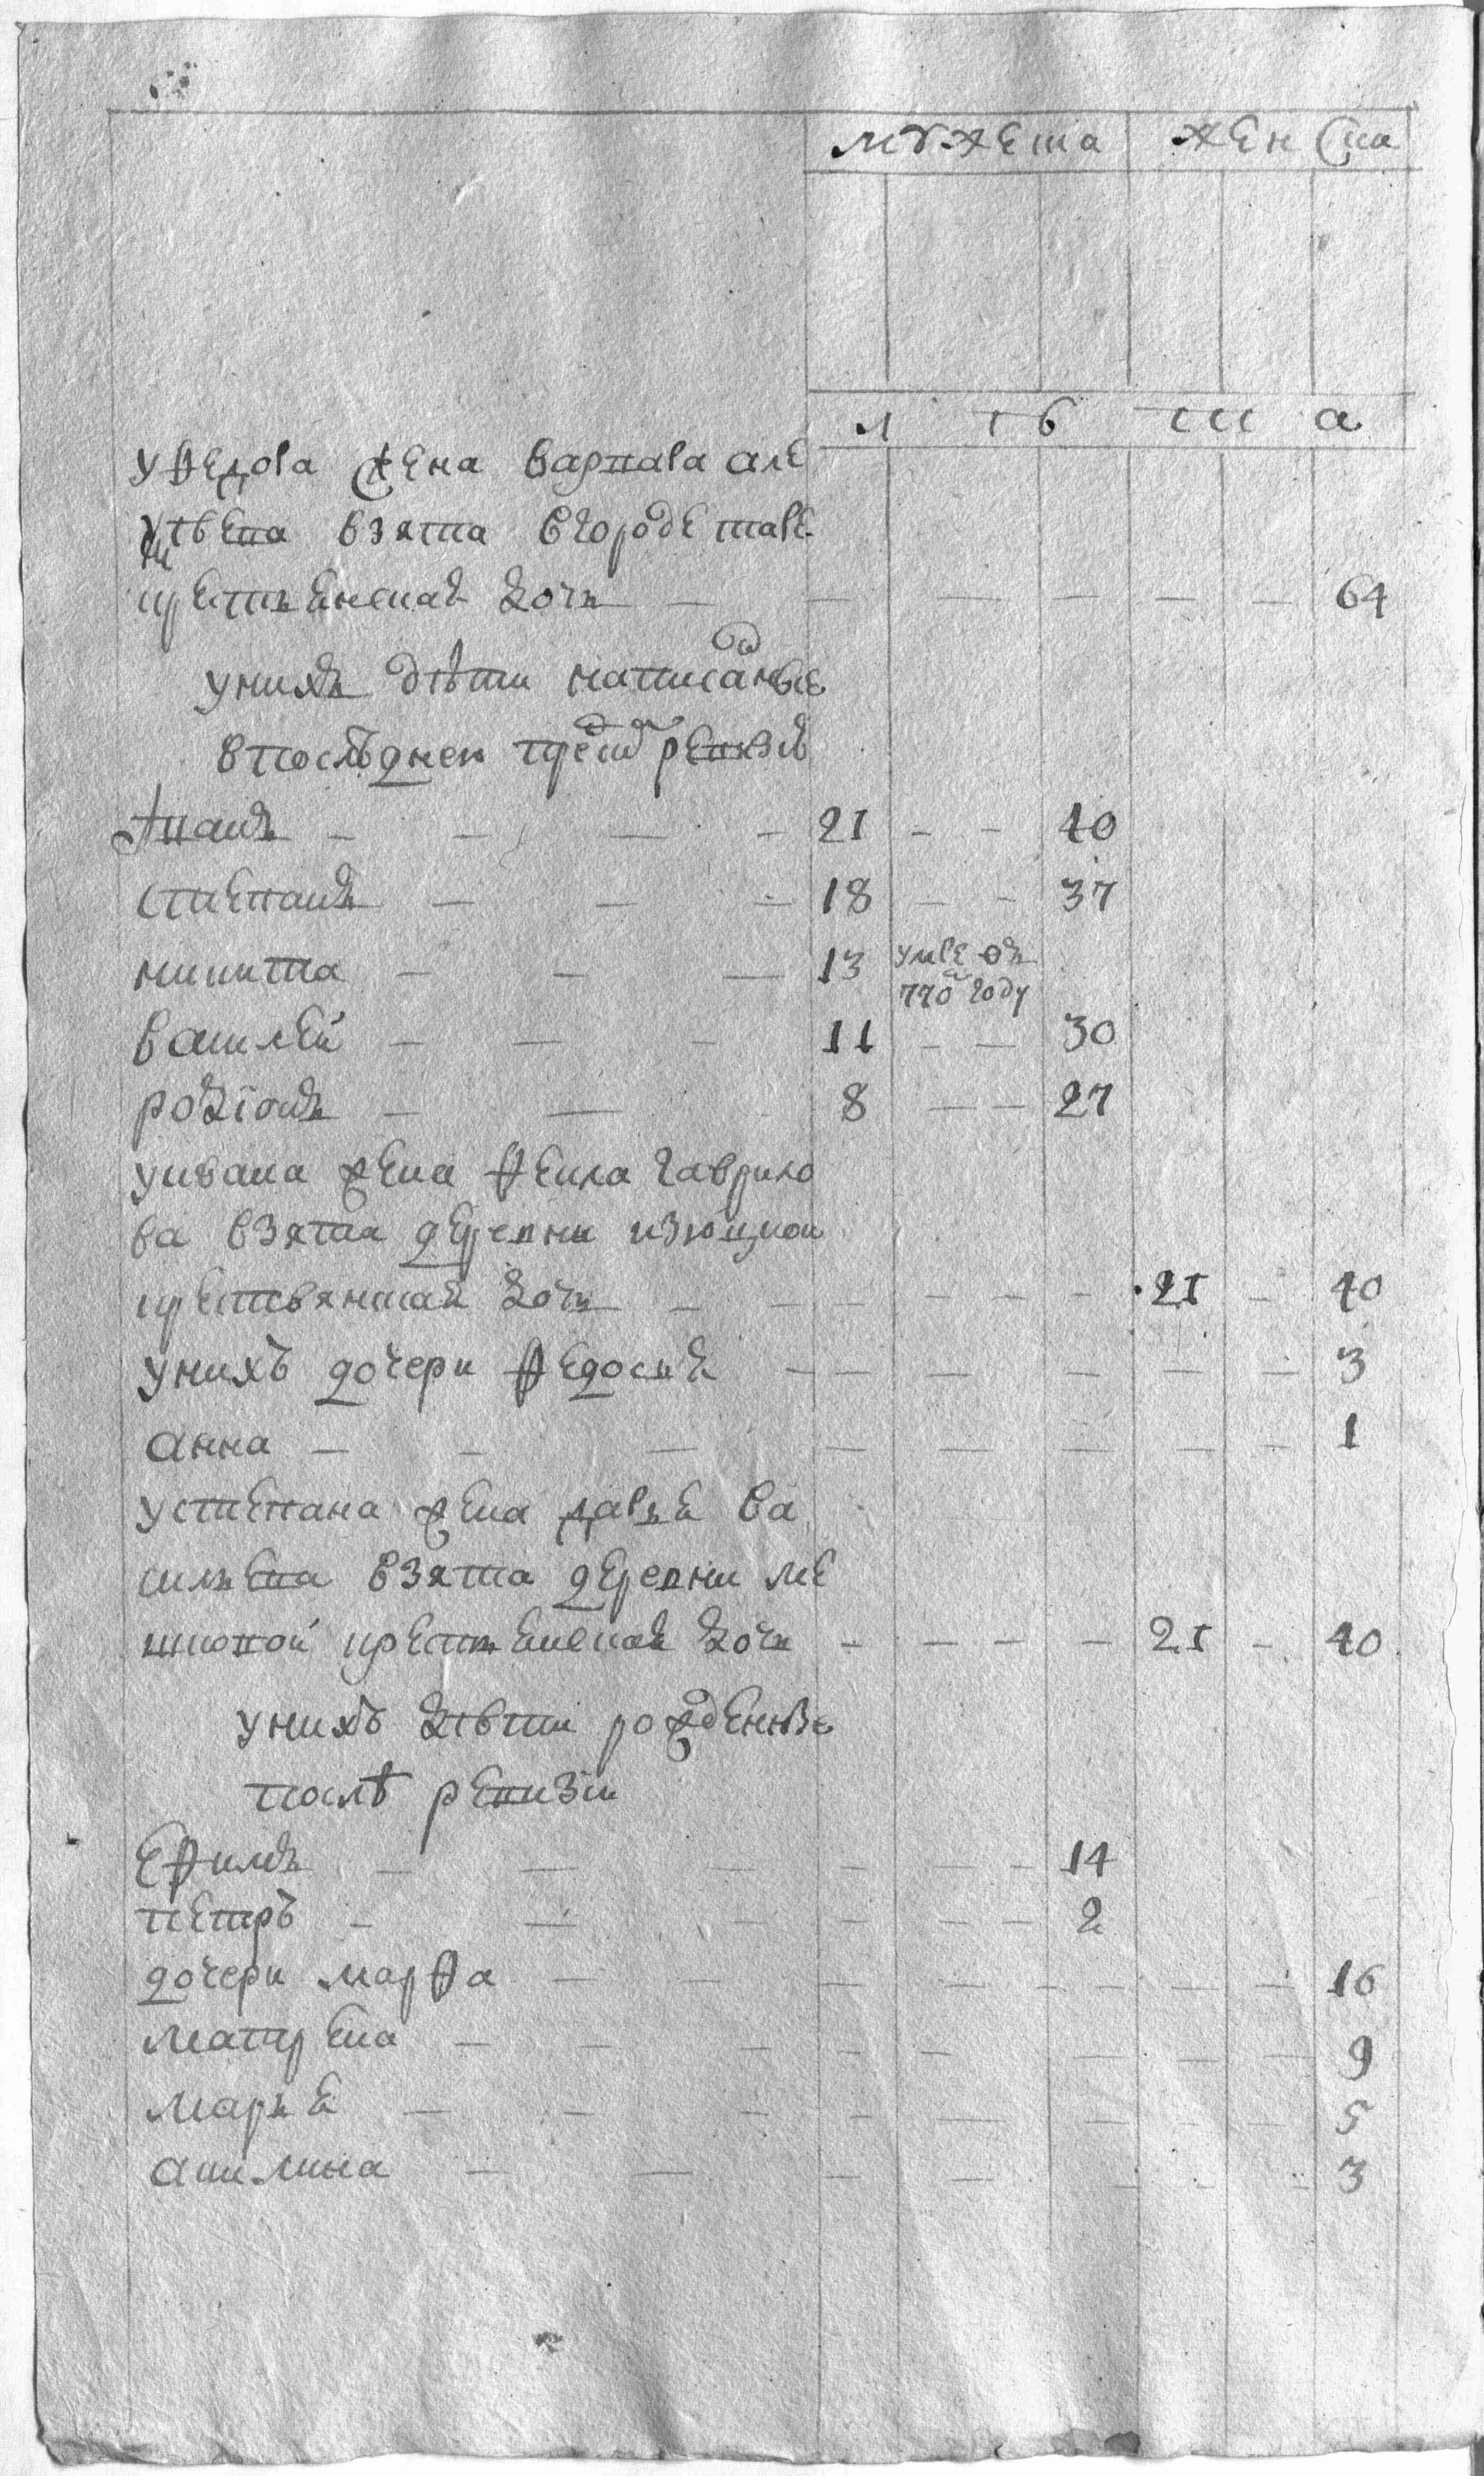 мужеска женска
лѣта
у Ѳедора жена варвара але
ѯѣева взята в городе
крестьянская дочь — 64
у нихъ дѣти написанные
в последнеи пред ревизи
Иванъ — 21 — 40
степанъ — 18 — 37
никита — 13 умре въ 770м году
василей — 11 — 30
родионъ — 8 — 27
у ивана жена Ѳекла гаврило
ва взята деревни изюцкои
крестьянская дочь — 21 — 40
у нихъ дочери Ѳедосия — 3
анна — 1
у степана жена дарья ва
сильева взята деревни ме
крестьянская дочь — 21 — 40
у нихъ дѣти рожденые
послѣ ревизiи
еѲимъ — 14
петръ — 2
дочери марѲа — 16
матрена — 9
марья — 5
акилина — 3